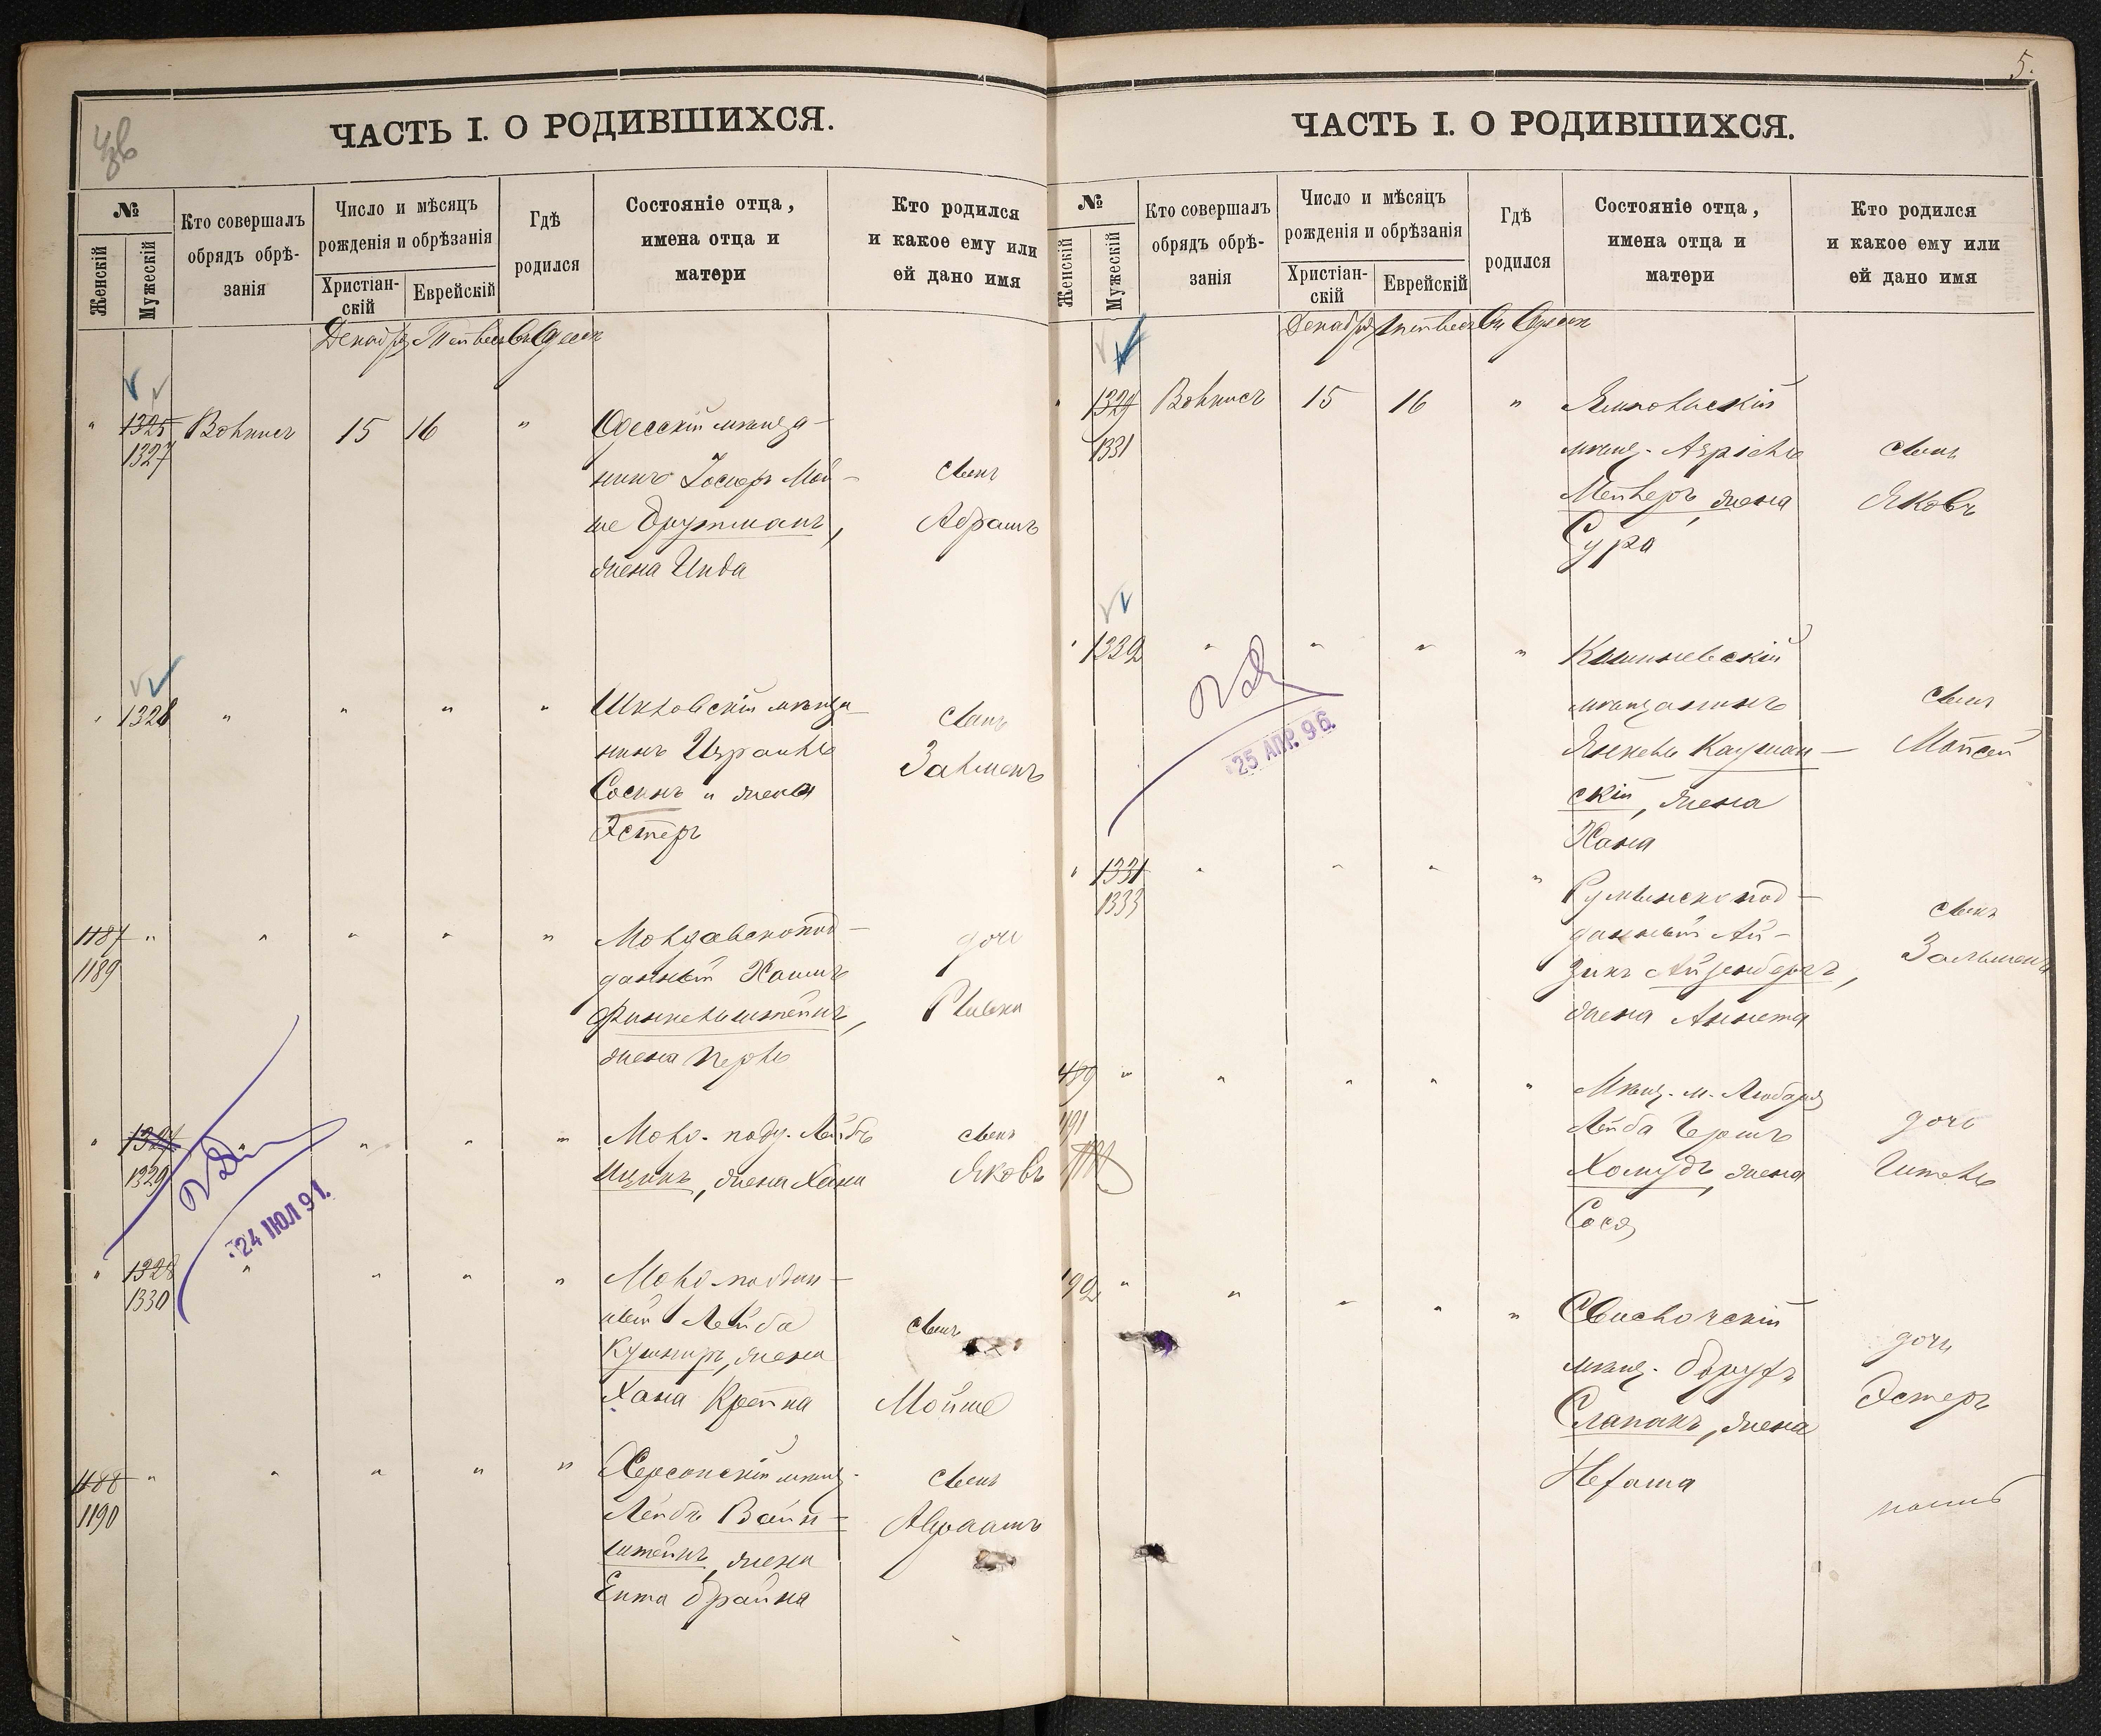 5.
ЧАСТЬ I. О РОДИВШИХСЯ.
№
Женскій
Мужескій
Кто совершалъ
обрядъ обрѣ-
занія
Число и мѣсяцъ
рожденія и обрѣзанія
Христіан-
скій
Еврейскій
Гдѣ
родился
Состояніе отца,
имена отца и
матери
Кто родился
и какое ему или
ей дано имя
Декабрь Тейвесъ Въ Одессѣ
" 1325 15 16 " Одесскій мѣща-
1327
нинъ Іосифъ Мой-
ше Друтманъ,
жена Инда
сынъ
Абрамъ
" 1328 " " " " Шкловскій мѣща-
нинъ Израиль
Соскинъ и жена
Эстеръ
сынъ
Залменъ
1187 " " " " " Молдавскопод-
1189
данный Хаимъ
Финкельштейнъ,
жена Перль
дочь
Ривка
" 1327 " " " " Молд. подд. Лейбъ
1329
Ицикъ, жена Хана
сынъ
Яковъ
24 ІЮЛ 91.
" 1328 " " " " Молд. поддан-
1330
ный Лейба
Кушниръ, жена
Хана Крейна
сынъ
Мойше
1188 " " " " " Херсонскій мѣщ.
1190
Лейбъ Вайн-
штейнъ, жена
Ента Брайна
сынъ
Авраамъ
ЧАСТЬ I. О РОДИВШИХСЯ.
№
Женскій
Мужескій
Кто совершалъ
обрядъ обрѣ-
занія
Число и мѣсяцъ
рожденія и обрѣзанія
Христіан-
скій
Еврейскій
Гдѣ
родился
Состояніе отца,
имена отца и
матери
Кто родился
и какое ему или
ей дано имя
Декабрь Тейвесъ Въ Одессѣ
" 1329 15 16 " Ямпольскій
1331
мѣщ. Азріель
Мейлеръ, жена
Сура
сынъ
Яковъ
" 1332 " " " " Кишиневскій
мѣщанинъ
Янкель Кауман-
скій, жена
Хана
сынъ
Мойсей
25 АПР. 96.
" 1331 " " " " Румынскопод-
1333
данный Ай-
зикъ Айзенбергъ,
жена Аннета
сынъ
Зальменъ
489 " " " " " Мѣщ. м. Любара
491
Лейба Гершъ
Хомудъ, жена
Сося
дочь
Гитель
192 " " " " " Свислочскій
мѣщ. Борухъ
Слапакъ, жена
Нехама
дочь
Эстеръ